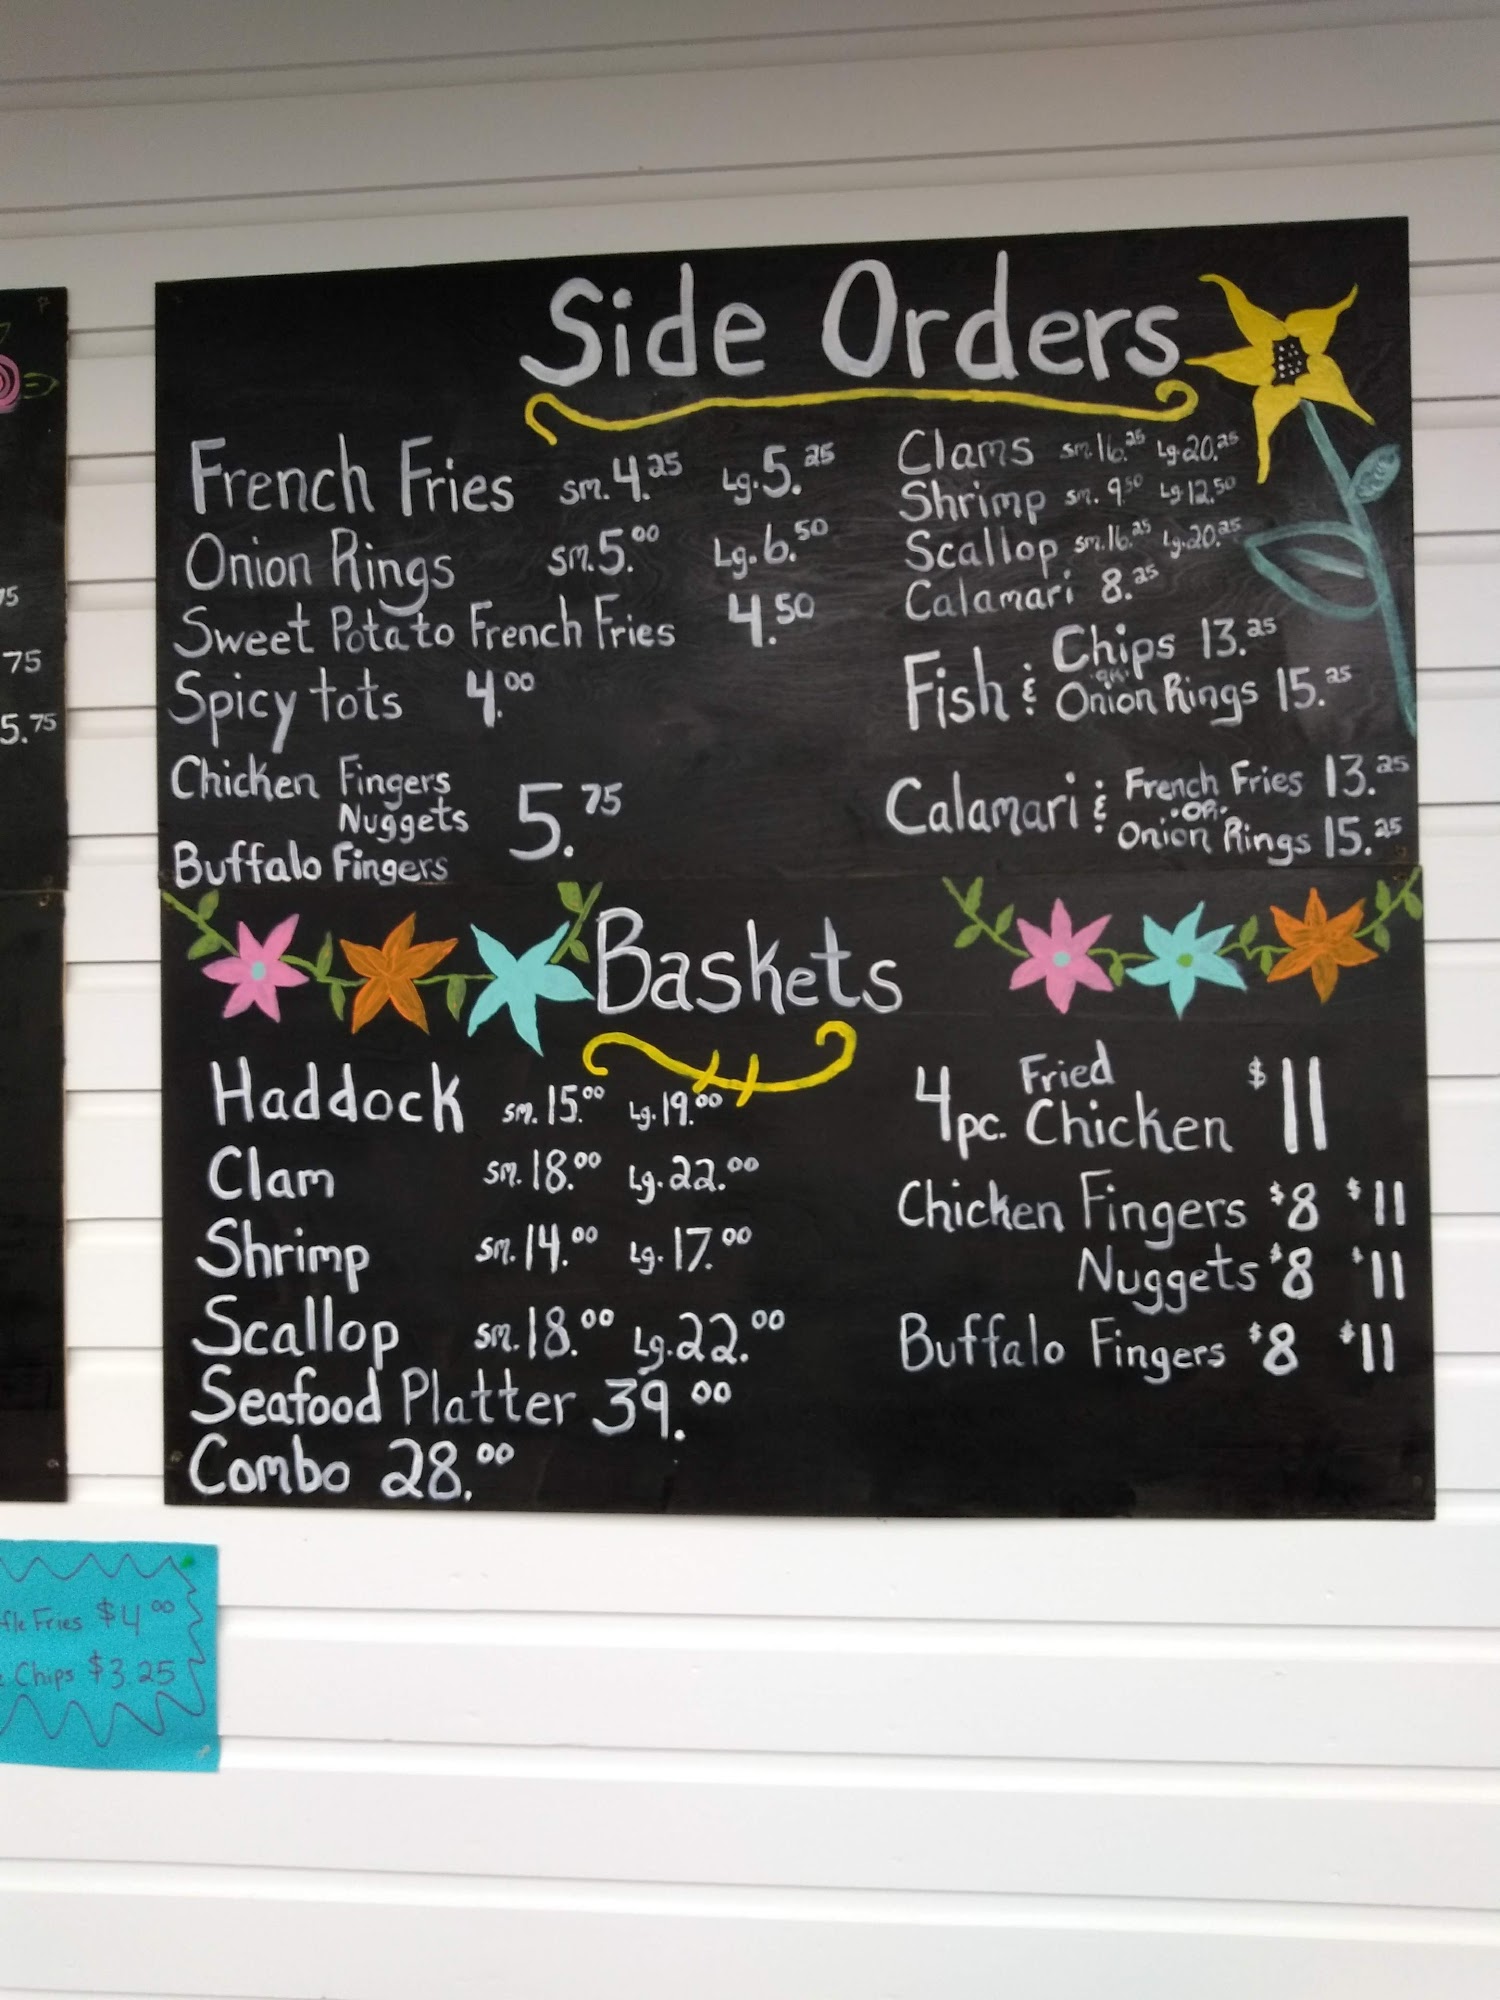 Side Orders
French Fries sm. 4.25 Lg. 5.25
Onion Rings sm. 5.00 Lg. 6.50
Sweet Potato French Fries 4.50
Spicy tots 4.00
Chicken Fingers
Nuggets 5.75
Buffalo Fingers
Clams sm. 16.25 Lg. 20.25
Shrimp sm. 9.50 Lg. 12.50
Scallop sm. 16.25 Lg. 20.25
Calamari 8.25
Fish & Chips 13.25
OR
Onion Rings 15.25
Calamari & French Fries 13.25
OR
Onion Rings 15.25
Baskets
Haddock sm. 15.00 Lg. 19.00
Clam sm. 18.00 Lg. 22.00
Shrimp sm. 14.00 Lg. 17.00
Scallop sm. 18.00 Lg. 22.00
Seafood Platter 39.00
Combo 28.00
4 pc. Fried Chicken $11
Chicken Fingers $8 $11
Nuggets $8 $11
Buffalo Fingers $8 $11
75
75
5.75
Fries $4.00
Chips $3.25